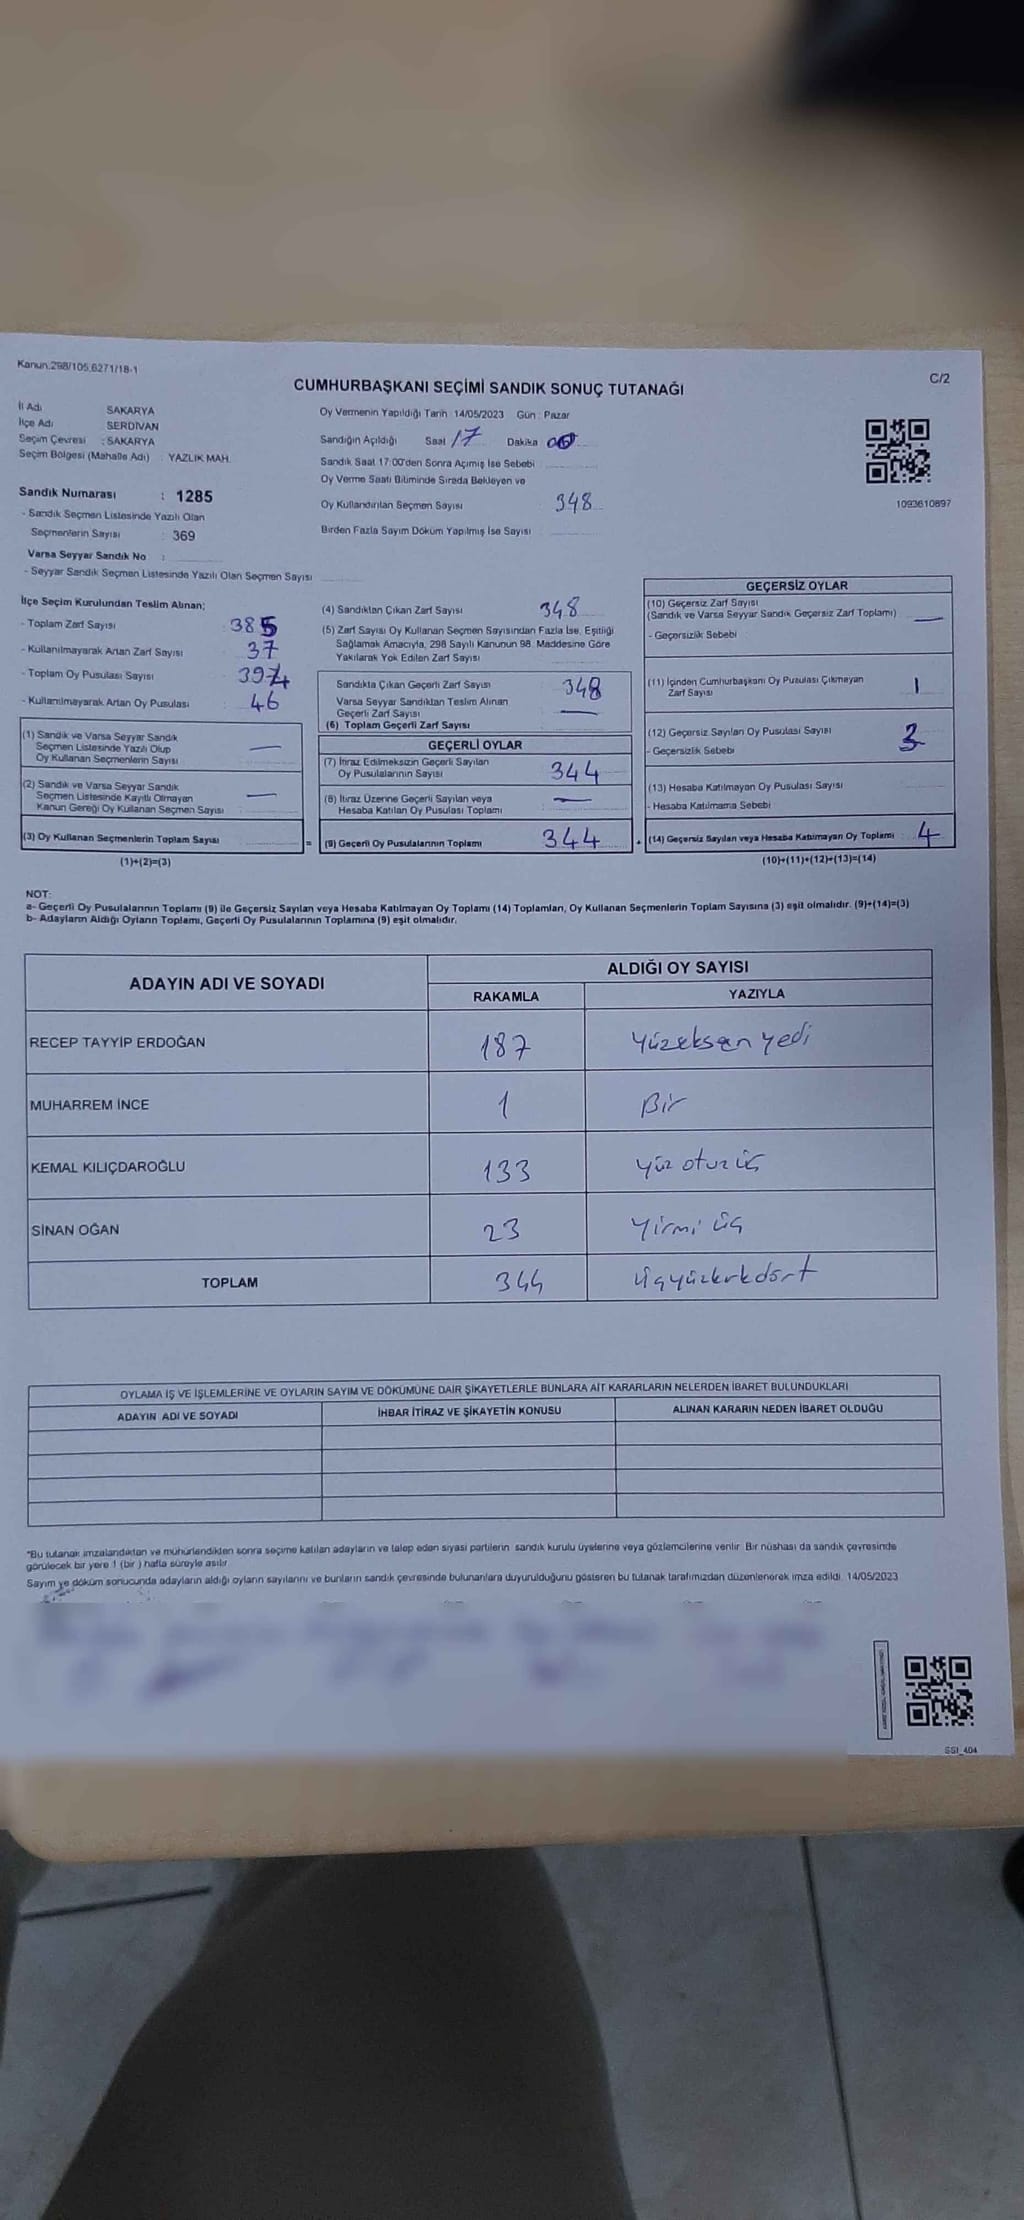 Kanun.298/105,6271/18-1
C/2
CUMHURBAŞKANI SEÇİMİ SANDIK SONUÇ TUTANAĞI
İl Adı SAKARYA
İlçe Adı : SERDİVAN
Seçim Çevresi : SAKARYA
Seçim Bölgesi (Mahalle Adı) : YAZLIK MAH.
Sandık Numarası : 1285
- Sandık Seçmen Listesinde Yazılı Olan
Seçmenlerin Sayısı : 369
Varsa Seyyar Sandık No :
- Seyyar Sandık Seçmen Listesinde Yazılı Olan Seçmen Sayısı
Oy Vermenin Yapıldığı Tarih : 14/05/2023 Gün : Pazar
Sandığın Açıldığı Saat 17 Dakika
Sandık Saat 17:00'den Sonra Açımış İse Sebebi
Oy Verme Saati Bitiminde Sırada Bekleyen ve
Oy Kullandırılan Seçmen Sayısı 348
Birden Fazla Sayım Döküm Yapılmış İse Sayısı
1093610897
İlçe Seçim Kurulundan Teslim Alınan;
- Toplam Zarf Sayısı 385
- Kullanılmayarak Artan Zarf Sayısı 37
- Toplam Oy Pusulası Sayısı 394
- Kullanılmayarak Artan Oy Pusulası 46
(1) Sandık ve Varsa Seyyar Sandık
Seçmen Listesinde Yazılı Olup
Oy Kullanan Seçmenlerin Sayısı —
(2) Sandık ve Varsa Seyyar Sandık
Seçmen Listesinde Kayıtlı Olmayan
Kanun Gereği Oy Kullanan Seçmen Sayısı —
(3) Oy Kullanan Seçmenlerin Toplam Sayısı
(1)+(2)=(3)
(4) Sandıktan Çıkan Zarf Sayısı 348
(5) Zarf Sayısı Oy Kullanan Seçmen Sayısından Fazla İse, Eşitliği
Sağlamak Amacıyla, 298 Sayılı Kanunun 98. Maddesine Göre
Yakılarak Yok Edilen Zarf Sayısı
Sandıkta Çıkan Geçerli Zarf Sayısı 348
Varsa Seyyar Sandıktan Teslim Alınan
Geçerli Zarf Sayısı —
(6) Toplam Geçerli Zarf Sayısı
GEÇERLİ OYLAR
(7) İtiraz Edilmeksizin Geçerli Sayılan
Oy Pusulalarının Sayısı 344
(8) İtiraz Üzerine Geçerli Sayılan veya
Hesaba Katılan Oy Pusulası Toplamı —
= (9) Geçerli Oy Pusulalarının Toplamı 344
GEÇERSİZ OYLAR
(10) Geçersiz Zarf Sayısı
(Sandık ve Varsa Seyyar Sandık Geçersiz Zarf Toplamı) —
- Geçersizlik Sebebi
(11) İçinden Cumhurbaşkanı Oy Pusulası Çıkmayan
Zarf Sayısı 1
(12) Geçersiz Sayılan Oy Pusulası Sayısı 3
- Geçersizlik Sebebi
(13) Hesaba Katılmayan Oy Pusulası Sayısı
- Hesaba Katılmama Sebebi
+ (14) Geçersiz Sayılan veya Hesaba Katılmayan Oy Toplamı 4
(10)+(11)+(12)+(13)=(14)
NOT:
a- Geçerli Oy Pusulalarının Toplamı (9) ile Geçersiz Sayılan veya Hesaba Katılmayan Oy Toplamı (14) Toplamları, Oy Kullanan Seçmenlerin Toplam Sayısına (3) eşit olmalıdır. (9)+(14)=(3)
b- Adayların Aldığı Oyların Toplamı, Geçerli Oy Pusulalarının Toplamına (9) eşit olmalıdır.
ADAYIN ADI VE SOYADI ALDIĞI OY SAYISI
RAKAMLA YAZIYLA
RECEP TAYYİP ERDOĞAN 187 yüzseksen yedi
MUHARREM İNCE 1 Bir
KEMAL KILIÇDAROĞLU 133 yüz otuz üç
SİNAN OĞAN 23 yirmi üç
TOPLAM 344 üçyüzkırkdört
OYLAMA İŞ VE İŞLEMLERİNE VE OYLARIN SAYIM VE DÖKÜMÜNE DAİR ŞİKAYETLERLE BUNLARA AİT KARARLARIN NELERDEN İBARET BULUNDUKLARI
ADAYIN ADI VE SOYADI İHBAR İTİRAZ VE ŞİKAYETİN KONUSU ALINAN KARARIN NEDEN İBARET OLDUĞU
*Bu tutanak imzalandıktan ve mühürlendikten sonra seçime katılan adayların ve talep eden siyasi partilerin sandık kurulu üyelerine veya gözlemcilerine verilir. Bir nüshası da sandık çevresinde
görülecek bir yere 1 (bir ) hafta süreyle asılır
Sayım ve döküm sonucunda adayların aldığı oyların sayılarını ve bunların sandık çevresinde bulunanlara duyurulduğunu gösteren bu tutanak tarafımızdan düzenlenerek imza edildi. 14/05/2023
SSI_404